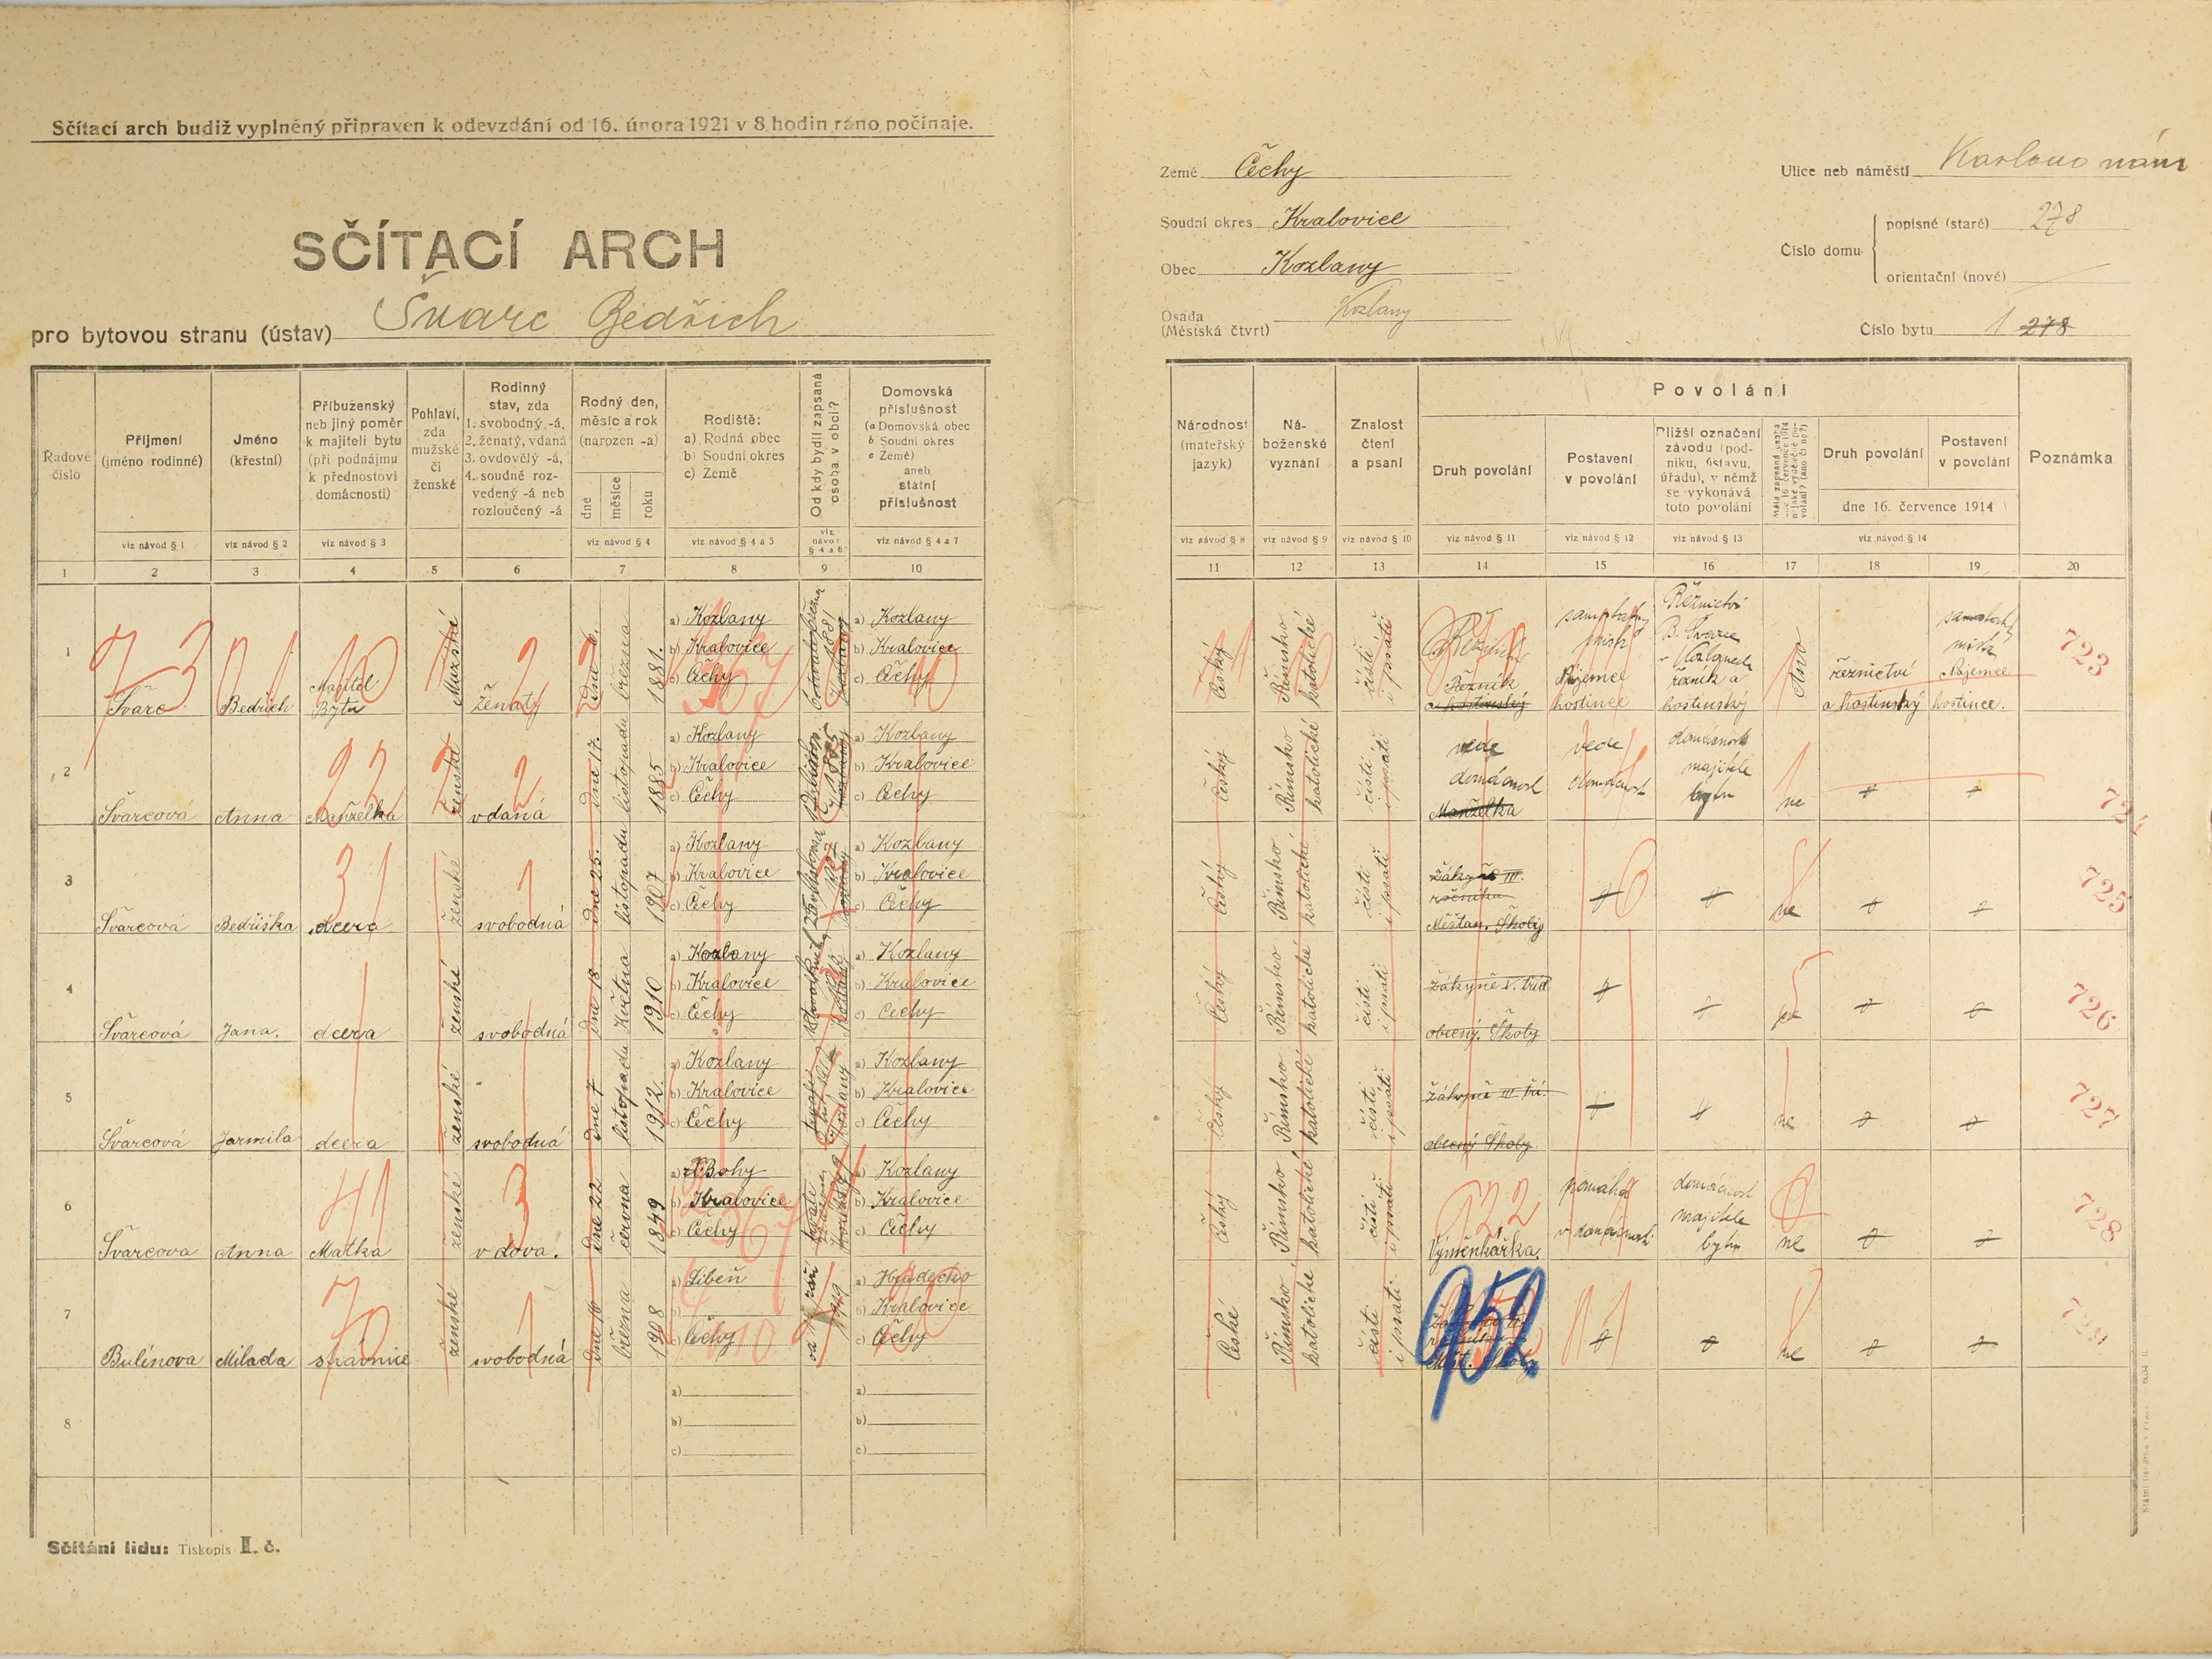 Sčítací arch budiž vyplněný připraven k odevzdání od 16. února 1921 v 8 hodin ráno počínaje.
SČÍTACÍ ARCH
pro bytovou stranu (ústav) Švarc Bedřich
Země Čechy
Soudní okres Kralovice
Obec Kozlany
Osada (Městská čtvrť) Kozlany
Ulice neb náměstí Karlovo nám
Číslo domu
popisné (staré) 278
orientační (nové)
Číslo bytu 1 278
Řadové číslo
Příjmení (jméno rodinné)
Jméno (křestní)
Příbuzenský neb jiný poměr k majiteli bytu (při podnájmu k přednostovi domácnosti)
Pohlaví, zda mužské či ženské
Rodinný stav, zda 1. svobodný -á, 2. ženatý, vdaná 3. ovdovělý -á, 4. soudně rozvedený -á neb rozloučený -á
Rodný den, měsíc a rok (narozen -a)
dne měsíce roku
Rodiště: a) Rodná obec b) Soudní okres c) Země
Od kdy bydlí zapsaná osoba v obci?
Domovská příslušnost (a Domovská obec b Soudní okres c Země) aneb státní příslušnost
viz návod § 1 viz návod § 2 viz návod § 3 viz návod § 4 viz návod § 4 a 5 viz návod § 4 a 6 viz návod § 4 a 7
1 2 3 4 5 6 7 8 9 10
Národnost (mateřský jazyk)
Náboženské vyznání
Znalost čtení a psaní
Povolání
Druh povolání
Postavení v povolání
Bližší označení závodu (podniku, ústavu, úřadu), v němž se vykonává toto povolání
Druh povolání
Postavení v povolání
dne 16. července 1914
Poznámka
viz návod § 8 viz návod § 9 viz návod § 10 viz návod § 11 viz návod § 12 viz návod § 13 viz návod § 14
11 12 13 14 15 16 17 18 19 20
1 Švarc Bedřich Majitel Bytu Mužské ženatý dne 6. března 1881
a) Kozlany b) Kralovice c) Čechy
a) Kozlany b) Kralovice c) Čechy
český Římsko katolické čísti i psati
Řezník a hostinský
samostatný mistr Nájemce hostince
Řeznictví B. Švarce řezník a hostinský
Ano
řeznictví a hostinský
samostatný mistr Nájemce hostince.
723
2 Švarcová Anna Manželka ženské vdaná dne 17. listopadu 1885
a) Kozlany b) Kralovice c) Čechy
a) Kozlany b) Kralovice c) Čechy
český Římsko katolické čísti i psati
vede domácnost Manželka
vede domácnost
domácnost majitele bytu
ne
724
3 Švarcová Bedřiška dcera ženské svobodná dne 25. listopadu 1907
a) Kozlany b) Kralovice c) Čechy
a) Kozlany b) Kralovice c) Čechy
český Římsko katolické čísti i psati
žákyně III. ročníku Měšťan. Školy
ne
725
4 Švarcová Jana. dcera ženské svobodná dne 18 Května 1910
a) Kozlany b) Kralovice c) Čechy
a) Kozlany b) Kralovice c) Čechy
český Římsko katolické čísti i psati
žákyně V. tříd. obecný. Školy
726
5 Švarcová Jarmila dcera ženské svobodná dne 7 listopadu 1912
a) Kozlany b) Kralovice c) Čechy
a) Kozlany b) Kralovice c) Čechy
český Římsko katolické čísti i psati
žákyně III tří. obecný Školy
ne
727
6 Švarcova Anna Matka ženské vdova. dne 22 června 1849
a) Bohy b) Kralovice c) Čechy
a) Kozlany b) Kralovice c) Čechy
český Římsko katolické čísti i psati
122
Výměnkářka.
pomáhá v domácnosti
domácnost majitele bytu
ne
728
7 Bulínova Milada strávnice ženské svobodná dne 16 března 1908
a) Libeň b) c) Čechy
a) Hradecko b) Kralovice c) Čechy
České Římsko katolické čísti i psati
952
ne
729
8
a)
b)
c)
a)
b)
c)
Sčítání lidu: Tiskopis II. č.